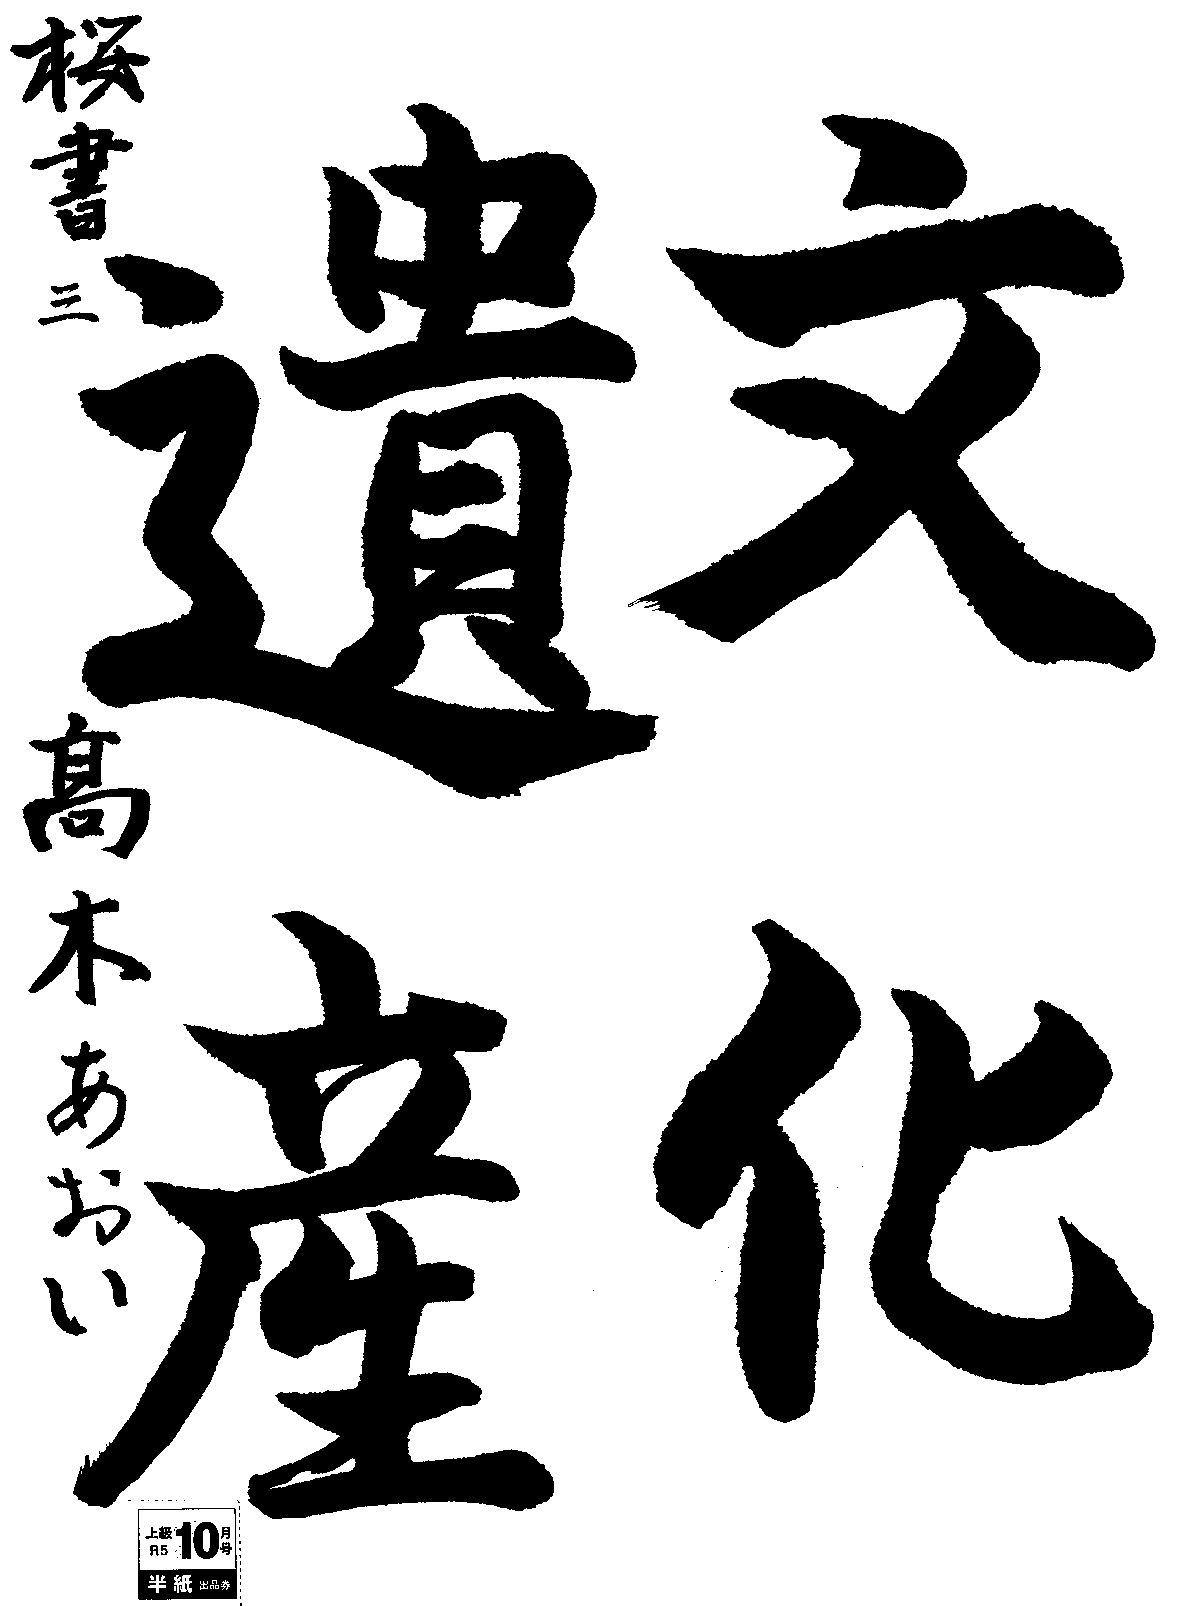 文化
遺産
桜書三 髙木あおい
上級 R5 10月号
半紙 出品券